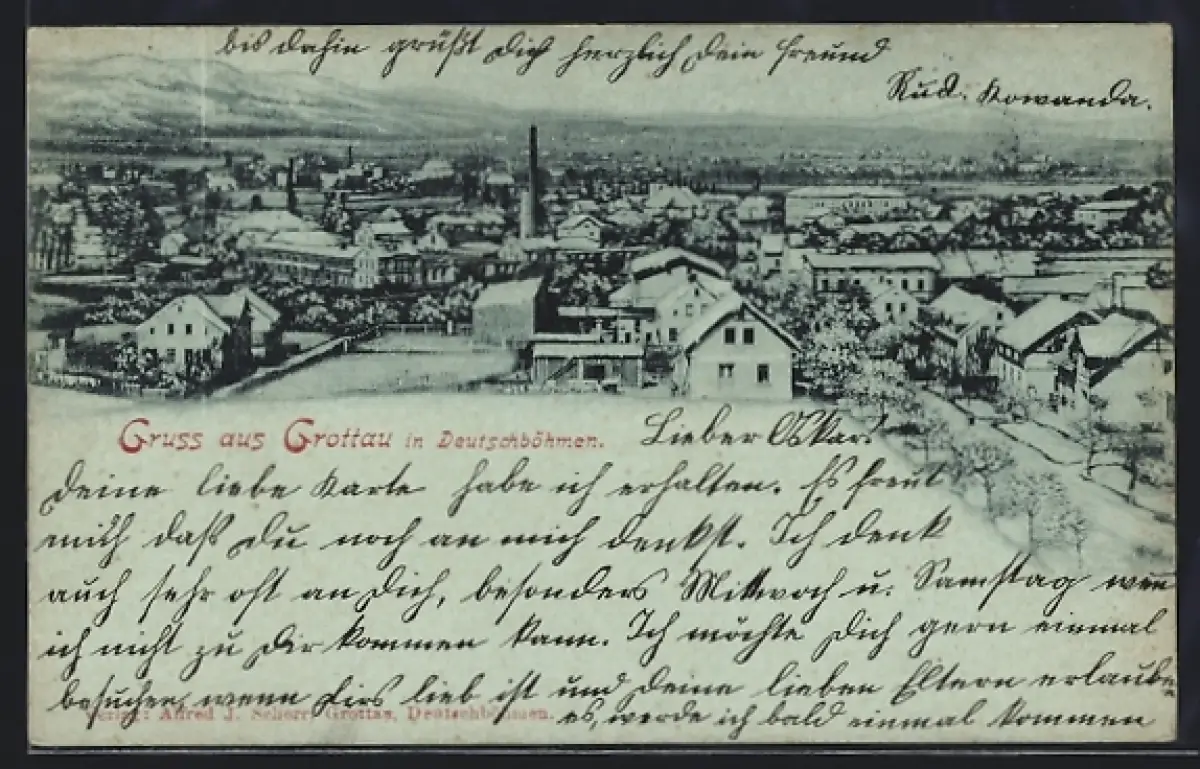 Gruss aus Grottau in Deutschböhmen.
Lieber Oskar!
Deine liebe Karte habe ich erhalten. Es freut
mich daß Du noch an mich denkst. Ich denk
auch sehr oft an Dich, besonders Mittwoch u. Samstag wen
ich nicht zu Dir kommen kann. Ich möchte Dich gern einmal
besuchen, wenn lieb ist und Deine lieben Eltern erlaube
es, werde ich bald einmal kommen
bis dahin grüßt Dich herzlich Dein Freund
Rud. Kowanda.
Verlag: Alfred J. Scherr, Grottau, Deutschböhmen.